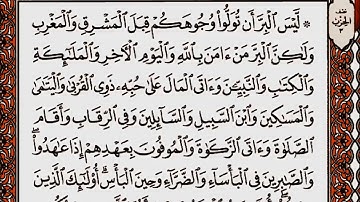 ۞ لَّيْسَ ٱلْبِرَّ أَن تُوَلُّوا۟ وُجُوهَكُمْ قِبَلَ ٱلْمَشْرِقِ وَٱلْمَغْرِبِ
وَلَٰكِنَّ ٱلْبِرَّ مَنْ ءَامَنَ بِٱللَّهِ وَٱلْيَوْمِ ٱلْءَاخِرِ وَٱلْمَلَٰٓئِكَةِ
وَٱلْكِتَٰبِ وَٱلنَّبِيِّـۧنَ وَءَاتَى ٱلْمَالَ عَلَىٰ حُبِّهِۦ ذَوِى ٱلْقُرْبَىٰ وَٱلْيَتَٰمَىٰ
وَٱلْمَسَٰكِينَ وَٱبْنَ ٱلسَّبِيلِ وَٱلسَّآئِلِينَ وَفِى ٱلرِّقَابِ وَأَقَامَ
ٱلصَّلَوٰةَ وَءَاتَى ٱلزَّكَوٰةَ وَٱلْمُوفُونَ بِعَهْدِهِمْ إِذَا عَٰهَدُوا۟ۖ
وَٱلصَّٰبِرِينَ فِى ٱلْبَأْسَآءِ وَٱلضَّرَّآءِ وَحِينَ ٱلْبَأْسِۗ أُو۟لَٰٓئِكَ ٱلَّذِينَ
نصف
الحزب
٣